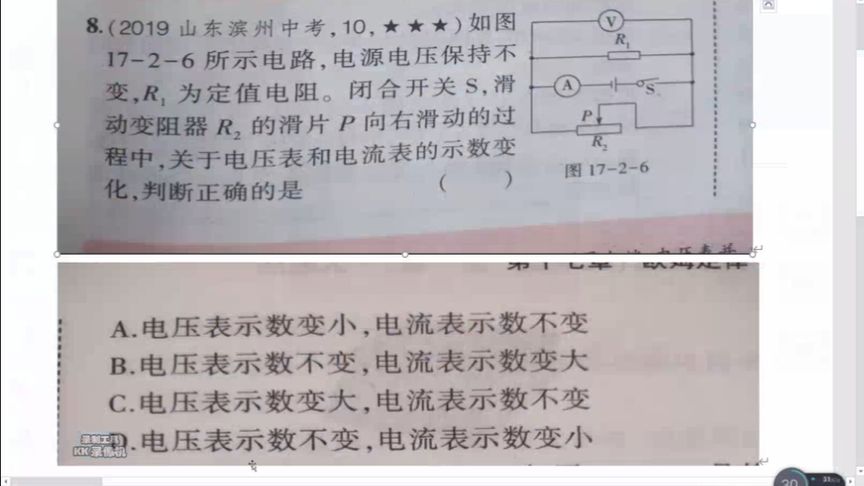 8.(2019 山东滨州中考,10,★★★)如图
17-2-6 所示电路,电源电压保持不
变,R₁ 为定值电阻。闭合开关 S,滑
动变阻器 R₂ 的滑片 P 向右滑动的过
程中,关于电压表和电流表的示数变
化,判断正确的是 ( )
V
R₁
A
S
P
R₂
图 17-2-6
第十七章 欧姆定律
A.电压表示数变小,电流表示数不变
B.电压表示数不变,电流表示数变大
C.电压表示数变大,电流表示数不变
D.电压表示数不变,电流表示数变小
录制工具
KK 录像机
30